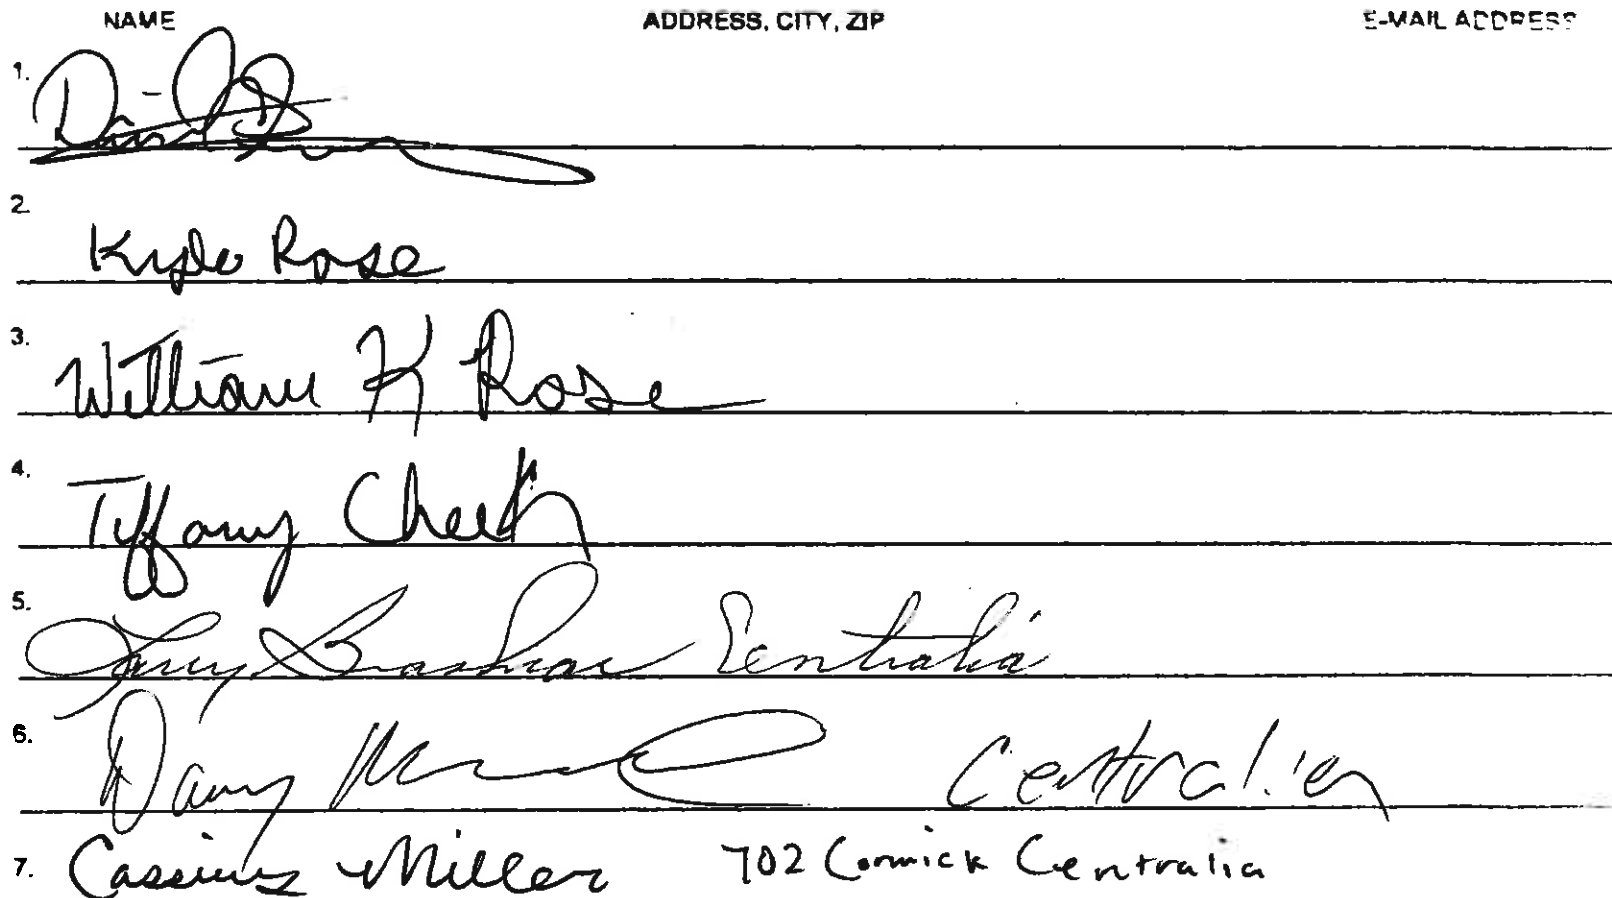 NAME ADDRESS, CITY, ZIP E-MAIL ADDRESS
1.
2. Kyle Rose
3. William K Rose
4. Tiffany Cheek
5. Larry Brashear Centralia
6. Danny Centralia
7. Cassius Miller 702 Cormick Centralia